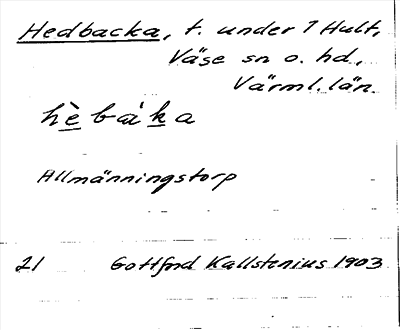 Hedbacka, t. under 7 Hult,
Väse sn o. hd.,
Värml. län.
hèbàka
Allmänningstorp
21 Gottfrid Kallstenius 1903